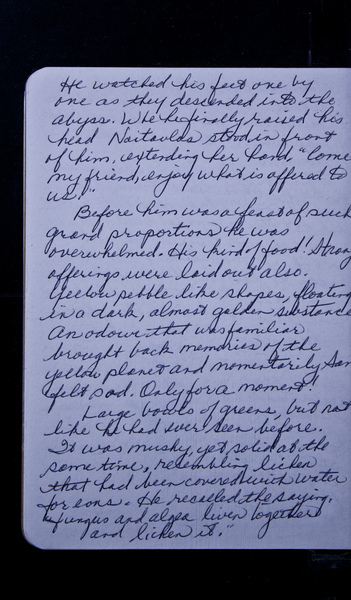 He watched his feet one by
one as they descended into the
abyss. Whe he finally raised his
head Naitavlas stood in front
of him, extending her hand, "Come
my friend, enjoy what is offered to
us."
Before him was a feast of such
grand proportions he was
overwhelmed. His kind of food! Strang
offerings were laid out also.
Yellow pebble like shapes, floating
in a dark, almost golden substance
An odour that was familiar
brought back memories of the
yellow planet and momentarily Sam
felt sad. Only for a moment!
Large bowls of greens, but not
like he had ever seen before.
It was mushy, yet solid at the
same time, resembling licken
that had been covered with water
for eons. He recalled the saying,
"fungus and algea liven together
and licken it."